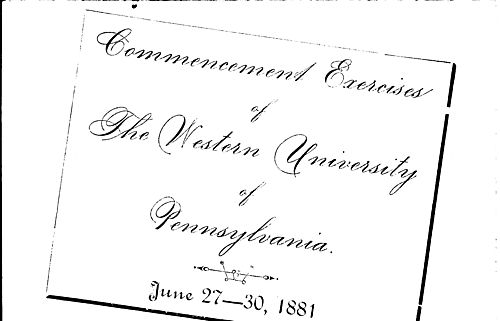 Commencement Exercises
of
The Western University
of
Pennsylvania.
June 27—30, 1881